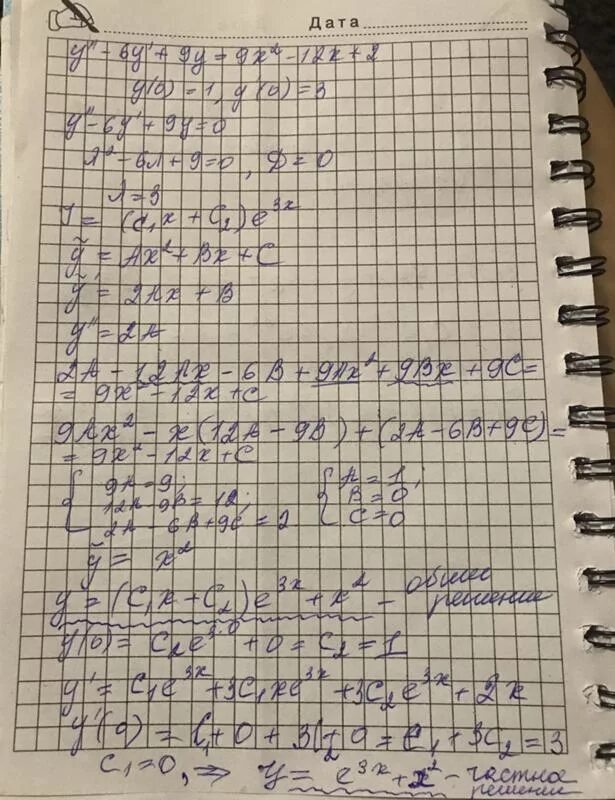 Дата
y'' - 6y' + 9y = 9x² - 12x + 2
y(0) = 1, y'(0) = 3
y'' - 6y' + 9y = 0
λ² - 6λ + 9 = 0, D = 0
λ = 3
Y = (C₁x + C₂)e^{3x}
ỹ = Ax² + Bx + C
ỹ' = 2Ax + B
y'' = 2A
2A - 12Ax - 6B + 9Ax² + 9Bx + 9C =
= 9x² - 12x + C
9Ax² - x(12A - 9B) + (2A - 6B + 9C) =
= 9x² - 12x + C
{ 9A = 9; { A = 1;
12A - 9B = 12; B = 0
2A - 6B + 9C = 2 C = 0
ỹ = x²
y = (C₁x + C₂)e^{3x} + x² - общее решение
y(0) = C₂e^{3·0} + 0 = C₂ = 1
y' = C₁e^{3x} + 3C₁xe^{3x} + 3C₂e^{3x} + 2x
y'(0) = C₁ + 0 + 3C₂ + 0 = C₁ + 3C₂ = 3
C₁ = 0, ⇒ y = e^{3x} + x² - частное решение